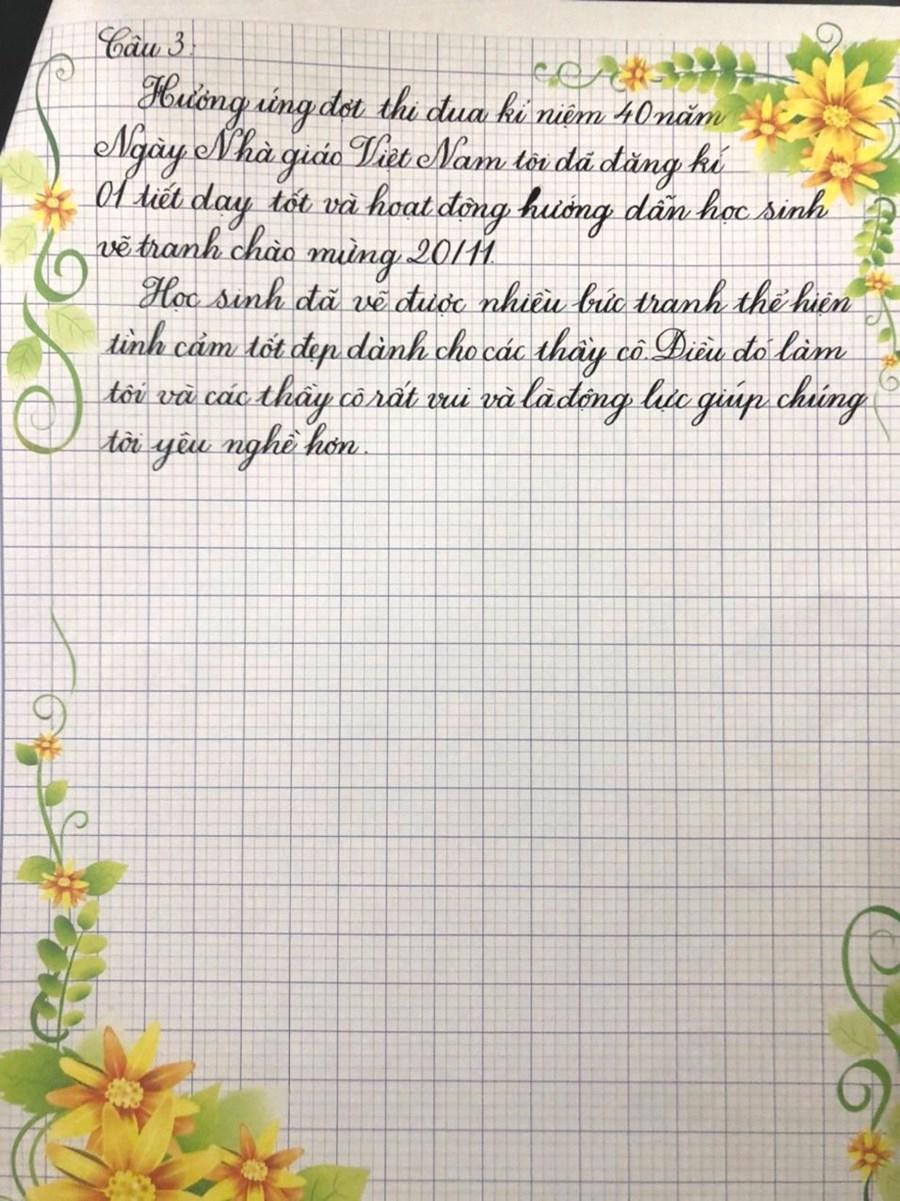 Câu 3:
Hưởng ứng đợt thi đua kỉ niệm 40 năm
Ngày Nhà giáo Việt Nam tôi đã đăng kí
01 tiết dạy tốt và hoạt động hướng dẫn học sinh
vẽ tranh chào mừng 20/11.
Học sinh đã vẽ được nhiều bức tranh thể hiện
tình cảm tốt đẹp dành cho các thầy cô. Điều đó làm
tôi và các thầy cô rất vui và là động lực giúp chúng
tôi yêu nghề hơn.